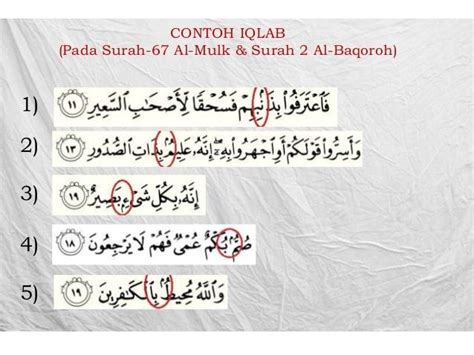 CONTOH IQLAB
(Pada Surah-67 Al-Mulk & Surah 2 Al-Baqoroh)
1) فَاعْتَرَفُوا بِذَنْۢبِهِمْ فَسُحْقًا لِأَصْحَابِ السَّعِيرِ ١١
2) وَأَسِرُّوا قَوْلَكُمْ أَوِ اجْهَرُوا بِهِ إِنَّهُ عَلِيمٌ بِذَاتِ الصُّدُورِ ١٣
3) إِنَّهُ بِكُلِّ شَيْءٍ بَصِيرٌ ١٩
4) صُمٌّ بُكْمٌ عُمْيٌ فَهُمْ لَا يَرْجِعُونَ ١٨
5) وَاللَّهُ مُحِيطٌ بِالْكَافِرِينَ ١٩